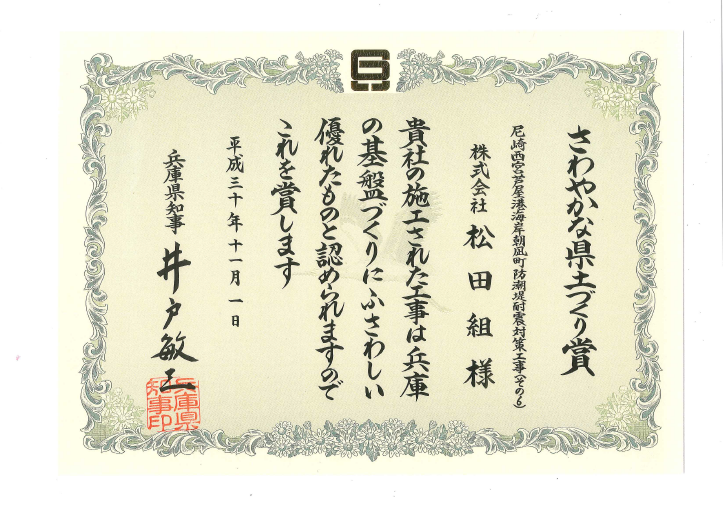 さわやかな県土づくり賞
尼崎西宮芦屋港海岸朝凪町防潮堤耐震対策工事(その6)
株式会社 松田組 様
貴社の施工された工事は兵庫
の基盤づくりにふさわしい
優れたものと認められますので
これを賞します
平成三十年十一月一日
兵庫県知事 井戸敏三
兵庫県
知事印